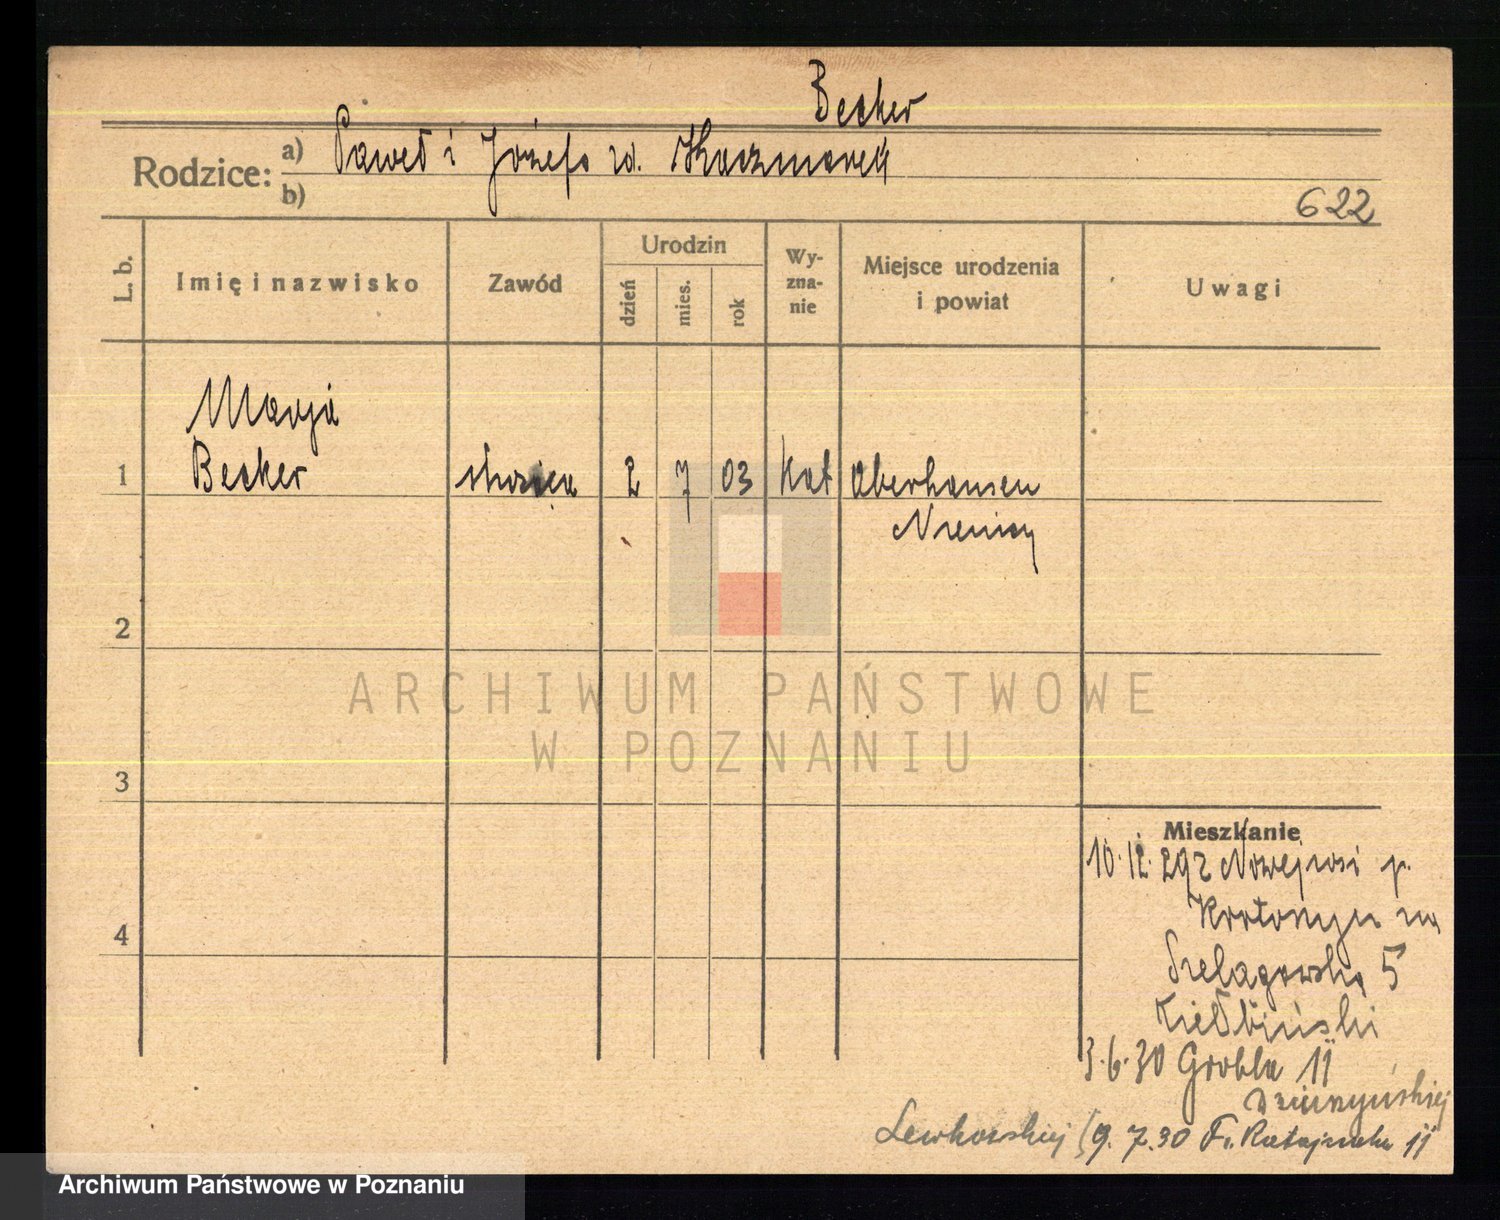 Becker
Rodzice: a) Paweł i Józefa zd. Kaczmarek
b)
622
L. b.
Imię i nazwisko
Zawód
Urodzin
dzień
mies.
rok
Wy-
zna-
nie
Miejsce urodzenia
i powiat
Uwagi
Marja
1 Becker 2 7 03 kat Oberhausen
Niemcy
2
3
4
Mieszkanie
10.12.29 z Nowejwsi p.
na
Szelągowska 5
Kiełbiński
3.6.30 Grobla 11
9.7.30 Fr. Ratajczaka 11
ARCHIWUM PAŃSTWOWE
W POZNANIU
Archiwum Państwowe w Poznaniu